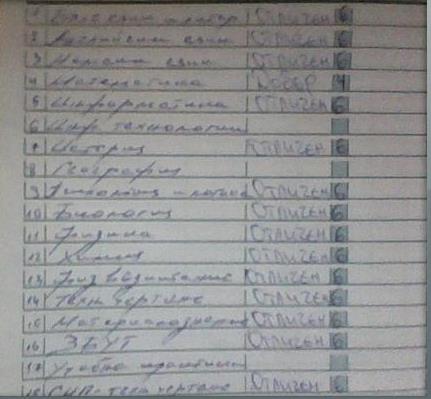 1 Бълг език и литер Отличен 6
2 Английски език Отличен 6
3 Немски език Отличен 6
4 Математика Добър 4
5 Информатика Отличен 6
6 Инф. технологии
7 История Отличен 6
8 География
9 Отличен 6
10 Биология Отличен 6
11 Физика Отличен 6
12 Химия Отличен 6
13 Физ възпитание Отличен 6
14 Техн чертане Отличен 6
15 Материалознание Отличен 6
16 ЗБУТ Отличен 6
17 Учебна практика
18 чертане Отличен 6